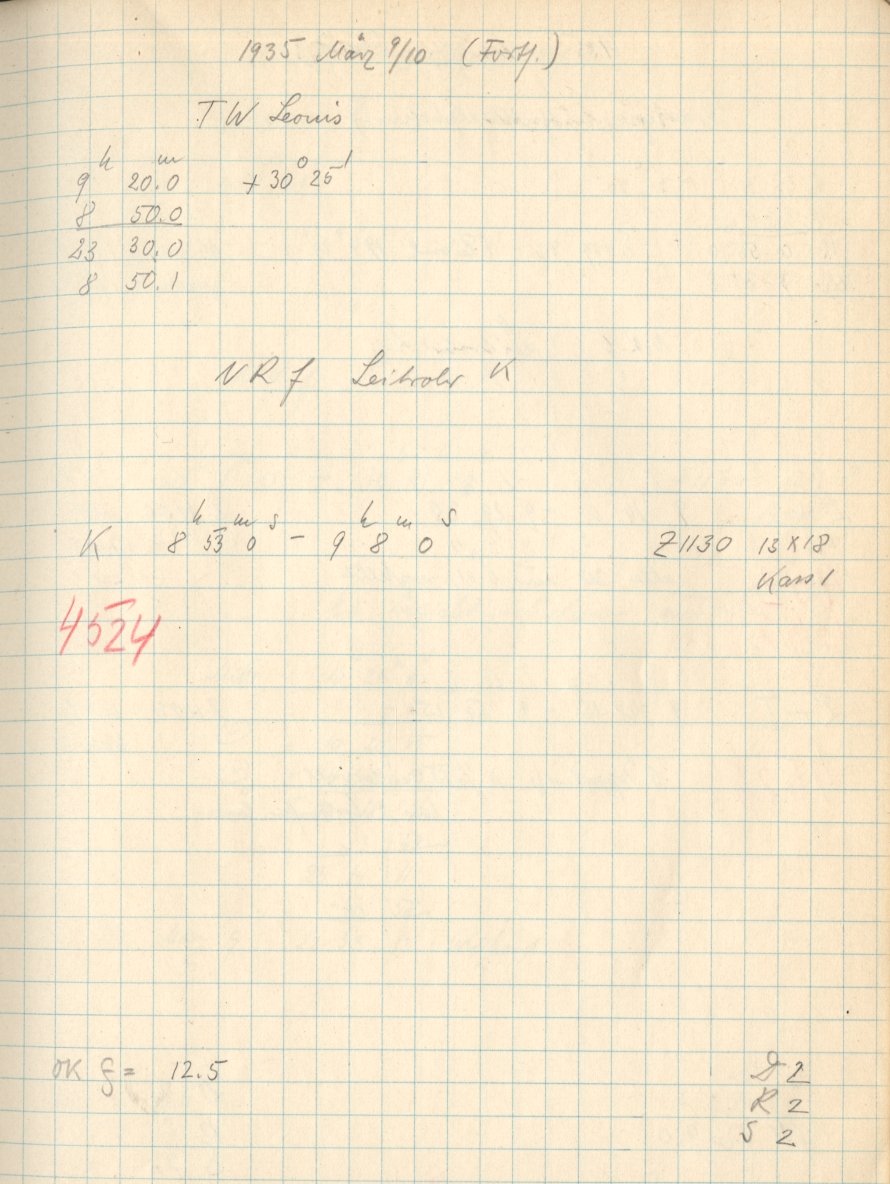 1935 März 9/10 (Fortf.)
TW Leonis
9h 20.0m +30° 25'
8 50.0
23 30.0
8 50.1
NRf Leitrohr K
K 8h 53m 0s - 9h 8m 0s Z1130 13x18
Kass 1
4524
OK = 12.5
D 2
R 2
S 2